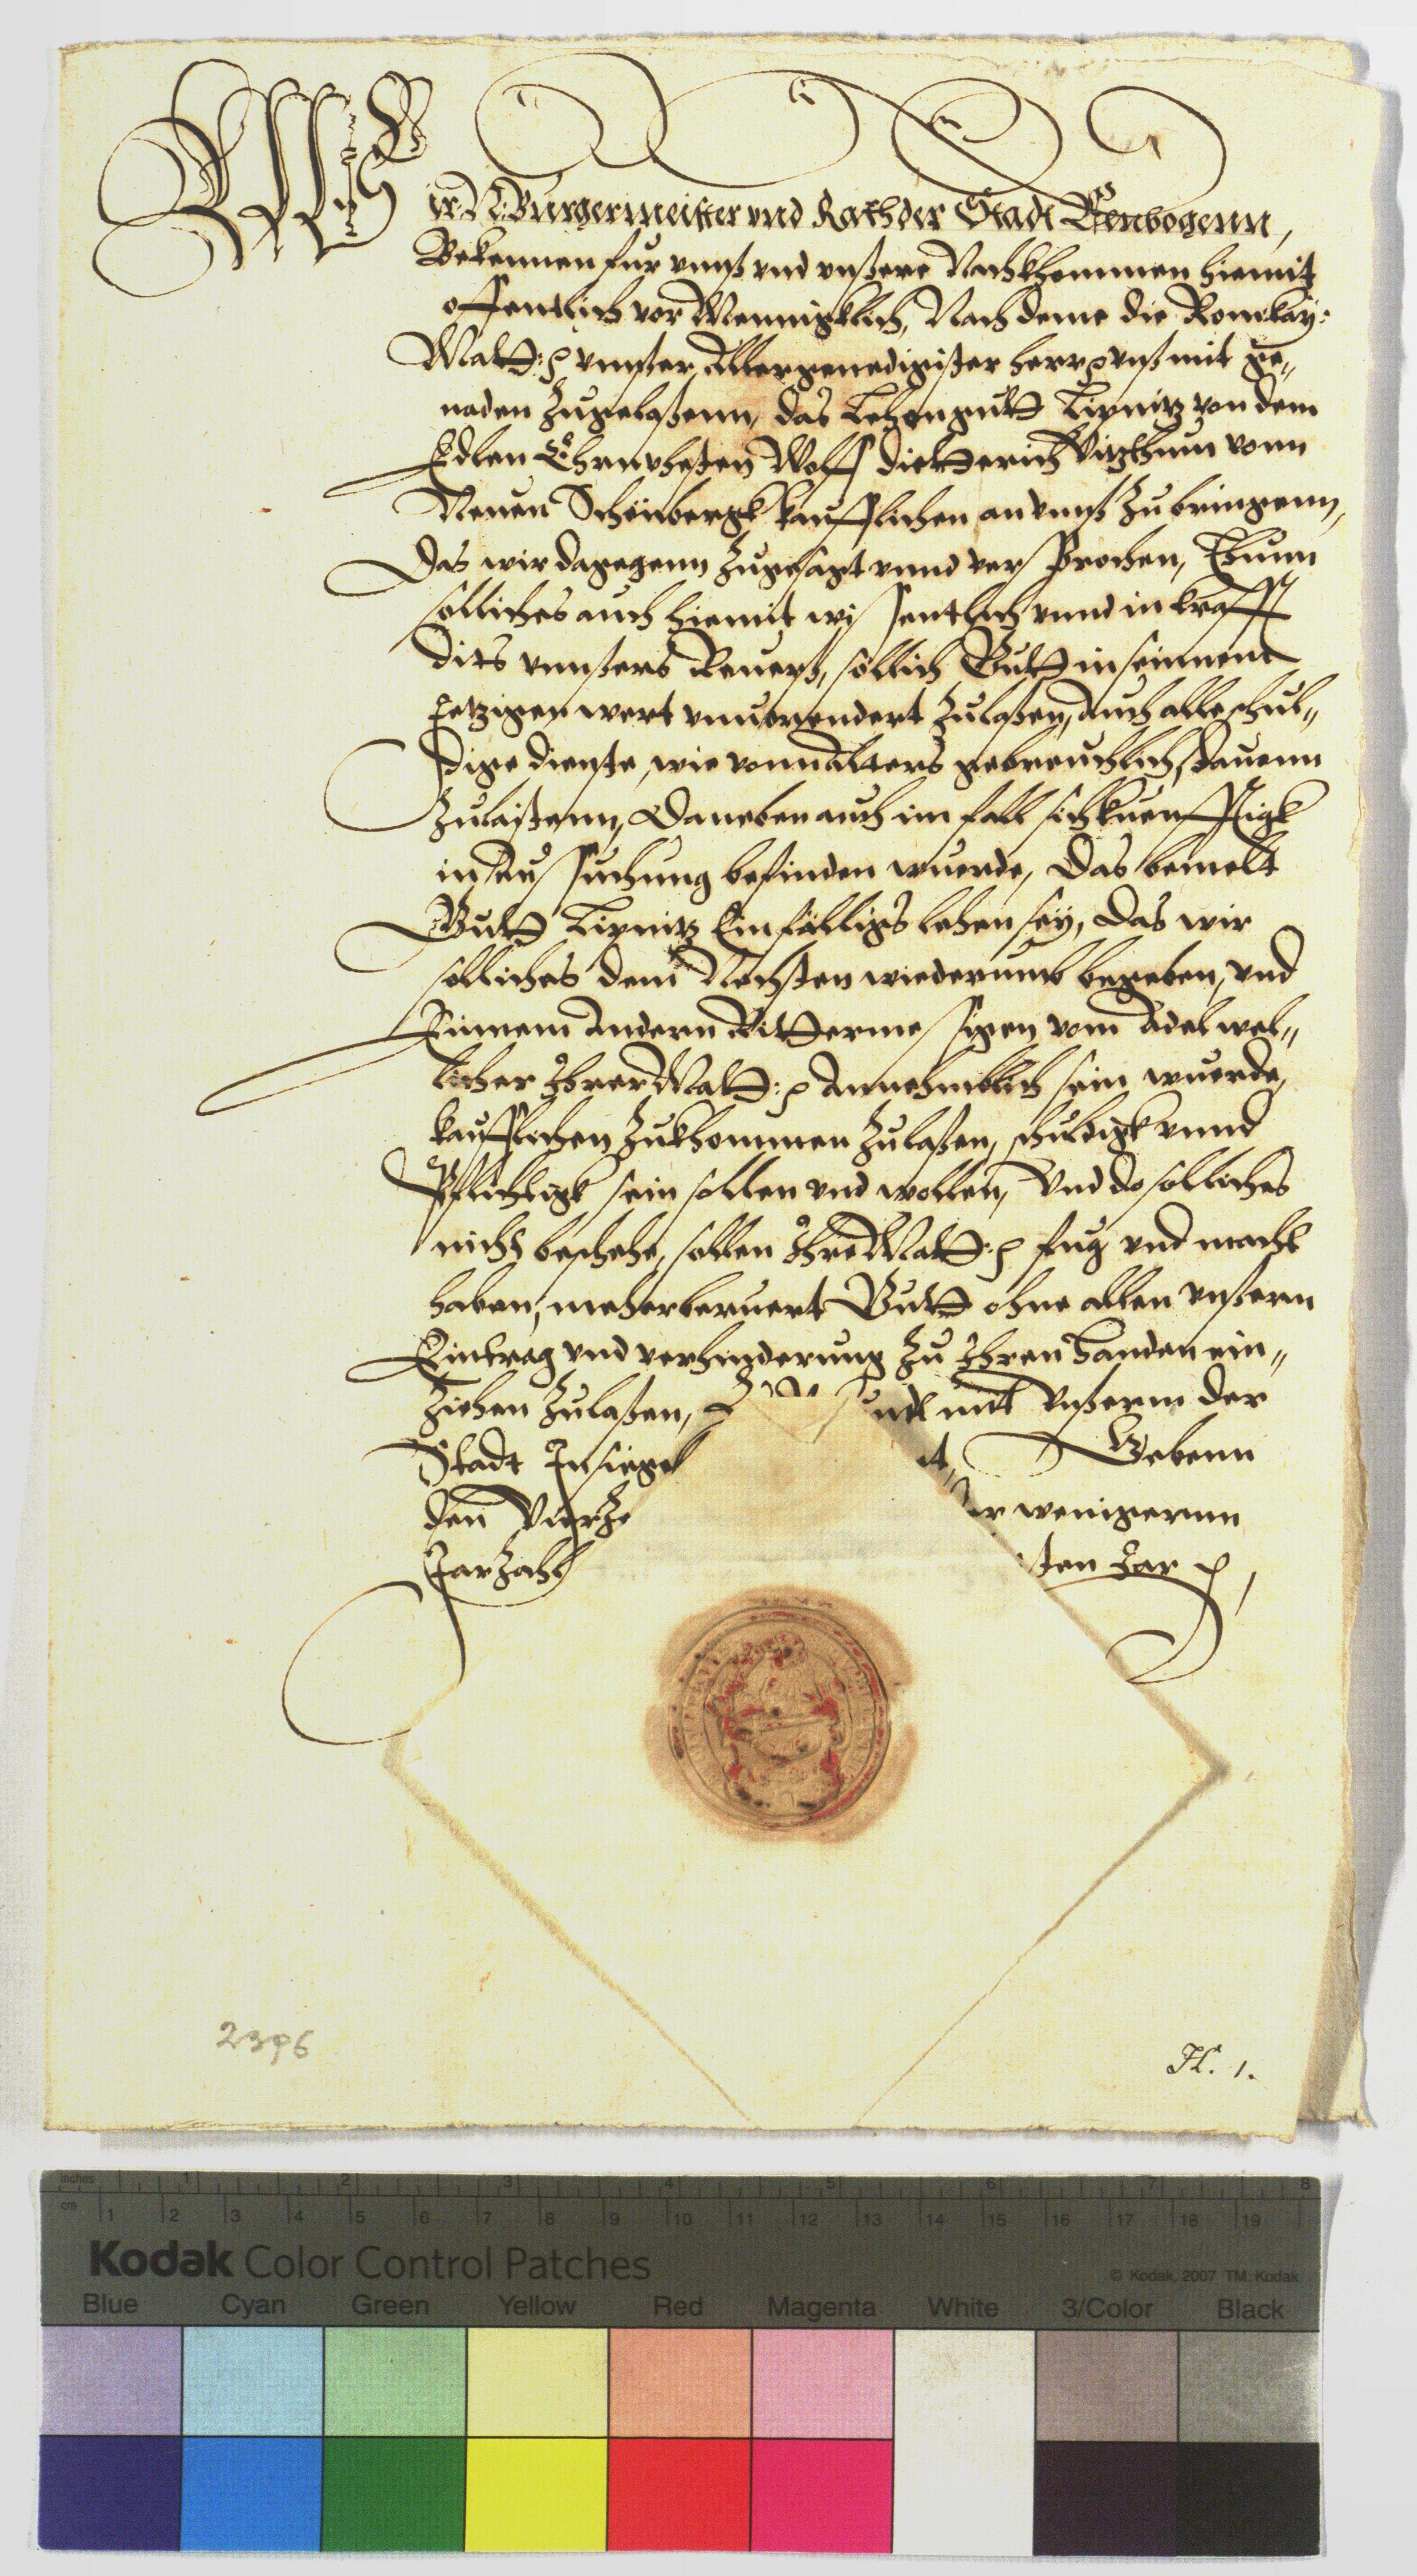 Wir N: Burgermeister vnd Rath der Stadt Elenbogenn,
Bekennen fur vnnß vnd vnßere Nachkhommen hiemit
offentlich vor Mennigklich, Nach deme die Rom: Kay:
Matt: vnnßer Allergenedigister herr vnß mit ge„
naden Zugelaßenn, das Lehengutt Tipnitz von dem
Edlen Ehrnvhesten Wolff Dietterich Vitzthum vonn
Neuen Schönbergk kaufflichen an vnnß Zubringenn,
Das wir dagegenn Zugesagt vnnd versprochen, Thunn
solliches auch hiemit wissentlich vnnd in krafft
dits vnnßers Reuerß, sollich Gutt in seinnem
Jetzigen wert vnuerendert Zulaßen, Auch alle schul„
dige dienste, wie vonn Alters gebreuchlich, dauonn
Zulaistenn, Daneben auch im fall sich kuenfftigk
in Aussuchung befinden wuerde, Das bemelt
Gutt Tipnitz Einfälligs lehen sey, Das wir
solliches dem Nechsten wiederumb begeben, vnd
Einnem Andern Rittermessigen vom Adel wel„
licher Ihrer Matt: Annehmblich sein wuerde,
kaufflichen Zukhommen Zulaßen, schuldigk vnnd
Pflichtigk sein sollen vnd wollen, Vnd do solliches
nicht beschehe, sollen Ihre Matt: fug vnd macht
haben, meherberuert Gutt ohne allen vnßerm
Eintrag vnd verhinderung Zu Ihren handen ein„
Ziehen Zulaßen, mit Vnßerm der
Stadt Insiegel Gebenn
den Vierze wenigernn
Jarzahl sten Jar
2396
H. 1.
inches 1 2 3 4 5 6 7 8
cm 1 2 3 4 5 6 7 8 9 10 11 12 13 14 15 16 17 18 19
Kodak Color Control Patches
© Kodak, 2007 TM: Kodak
Blue Cyan Green Yellow Red Magenta White 3/Color Black